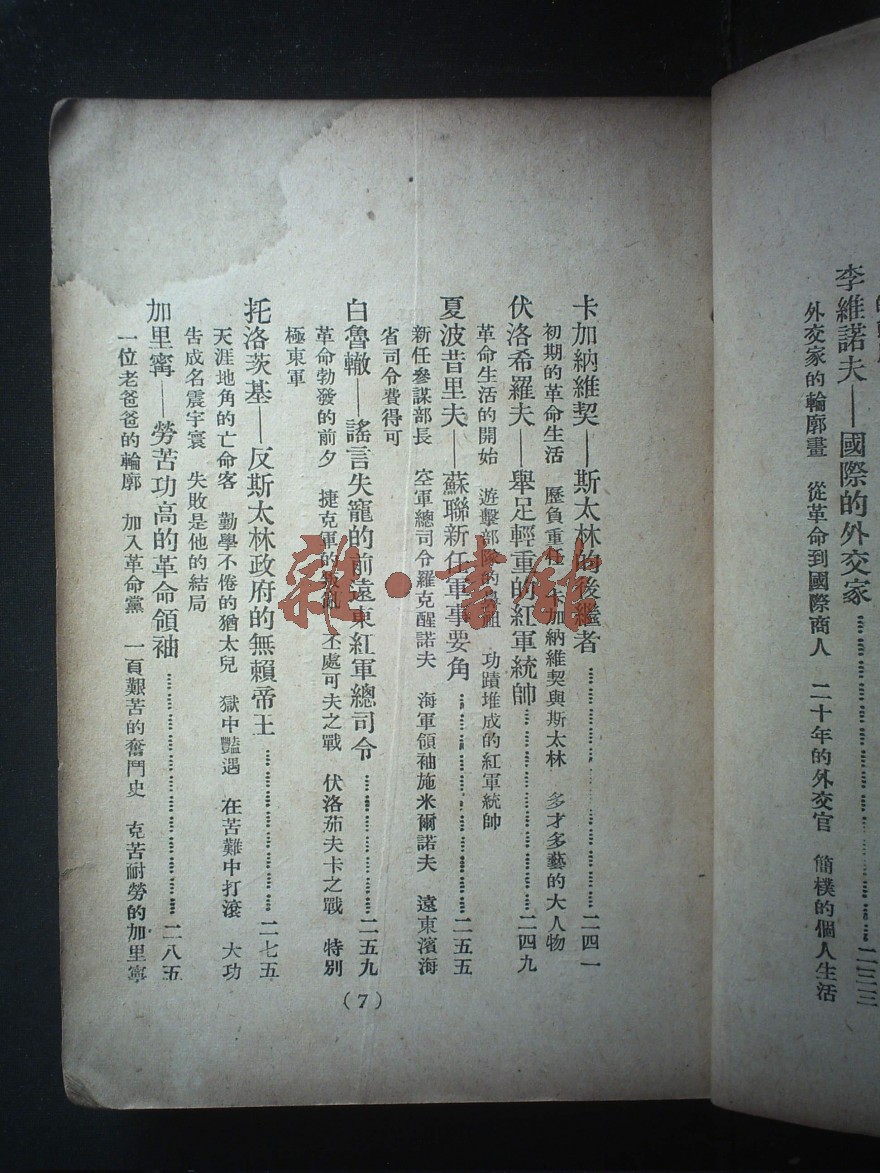 李維諾夫——國際的外交家……二三三
外交家的輪廓畫 從革命到國際商人 二十年的外交官 簡樸的個人生活
卡加納維契——斯太林的後繼者……二四一
初期的革命生活 歷負重任 卡加納維契與斯太林 多才多藝的大人物
伏洛希羅夫——舉足輕重的紅軍統帥……二四九
革命生活的開始 遊擊部隊的 功蹟堆成的紅軍統帥
夏波昔里夫——蘇聯新任軍事要角……二五五
新任參謀部長 空軍總司令羅克醒諾夫 海軍領袖施米爾諾夫 遠東濱海
省司令費得可
白魯轍——謠言失寵的前遠東紅軍總司令……二五九
革命勃發的前夕 捷克軍的叛亂 丕處可夫之戰 伏洛茄夫卡之戰 特別
極東軍
托洛茨基——反斯太林政府的無賴帝王……二七五
天涯地角的亡命客 勤學不倦的猶太兒 獄中豔遇 在苦難中打滾 大功
告成名震宇寰 失敗是他的結局
加里寗——勞苦功高的革命領袖……二八五
一位老爸爸的輪廓 加入革命黨 一頁艱苦的奮鬥史 克苦耐勞的加里寧
(7)
雜·書館